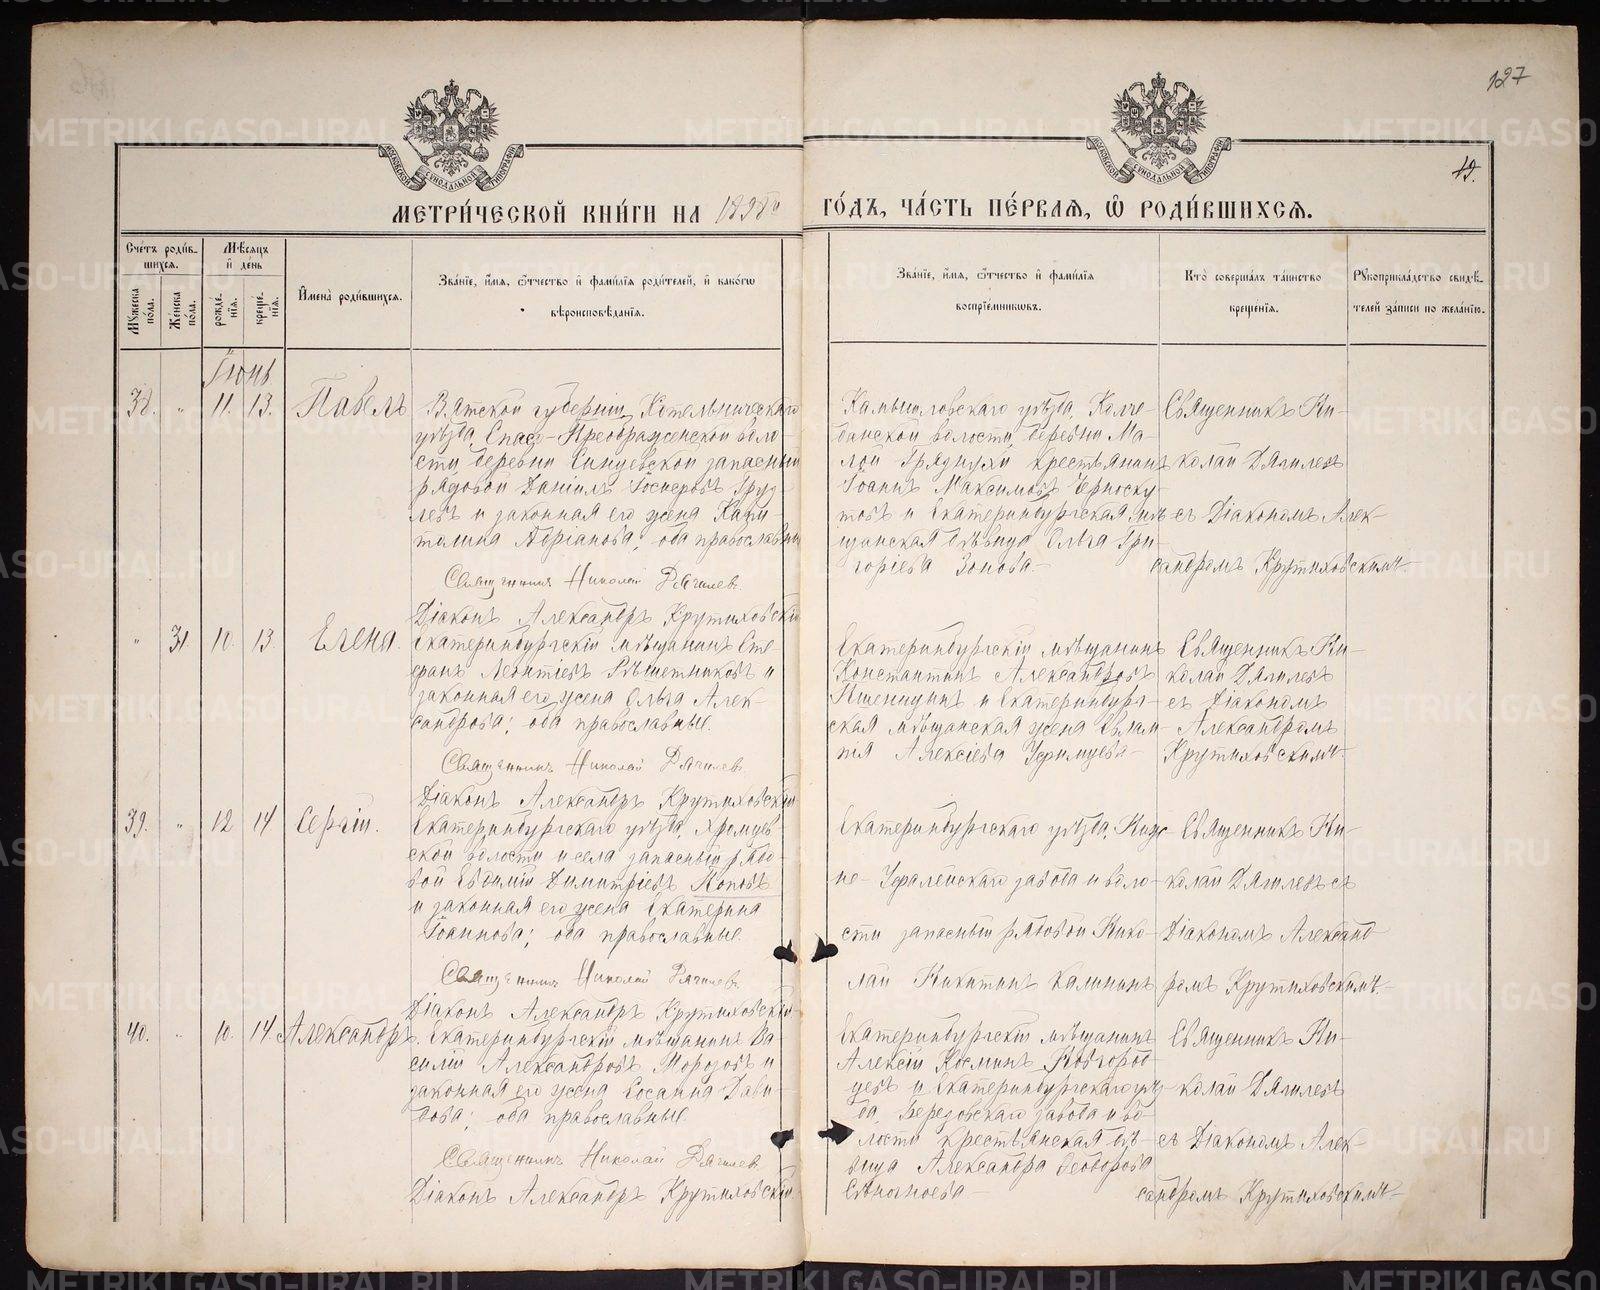 127
19.
МЕТРИ́ЧЕСКОЙ КНИ́ГИ НА 1898й ГО́ДЪ, ЧА́СТЬ ПЕ́РВАЯ, Ѡ РОДИ́ВШИХСЯ.
Сче́тъ роди́вшихся.
Мѣ́сяцъ и де́нь
Му́жеска по́ла.
Же́нска по́ла.
рожде́нїя.
креще́нїя.
Имена̀ роди́вшихся.
Зва́нїе, и́мя, ѻ́тчество и фами́лїя роди́телей, и како́гѡ вѣроисповѣ́данїя.
Зва́нїе, и́мя, ѻ́тчество и фами́лїя воспрїе́мникѡвъ.
Кто̀ соверша́лъ та́инство креще́нїя.
Рукоприкла́дство свидѣ́телей за́писи по жела́нїю.
Іюнь
38. " 11. 13. Павелъ
Вятской губерніи, Котельническаго
уѣзда, Спасо-Преображенской воло-
сти, деревни запасный
рядовой Даніилъ
и законная его жена Капи-
толина Адріанова; оба православные
Священникъ Николай Дягилев
Діаконъ Александръ Крутиховскій
Камышловскаго уѣзда, Колче-
данской волости, деревни Ма-
лой Грязнухи крестьянинъ
Іоаннъ Максимовъ Черноску-
товъ и Екатеринбургская мѣ-
щанская дѣвица Ольга Гри-
горіева Зонова
Священникъ Ни-
колай Дягилевъ
съ Діакономъ Алек-
сандромъ Крутиховскимъ
" 31. 10. 13. Елена.
Екатеринбургскій мѣщанинъ Сте-
фанъ Леонтіевъ Рѣшетниковъ и
законная его жена Ольга Алек-
сандрова; оба православные.
Священникъ Николай Дягилев
Діаконъ Александръ Крутиховскій
Екатеринбургскій мѣщанинъ
Константинъ Александровъ
Пшеницинъ и Екатеринбург-
ская мѣщанская жена Евлам-
пія Алексіева Уфимцева
Священникъ Ни-
колай Дягилевъ
съ Діакономъ
Александромъ
Крутиховскимъ
39. " 12 14 Сергій.
Екатеринбургскаго уѣзда, Хромцов-
ской волости и села запасный рядо-
вой Евдокимъ Димитріевъ Поповъ
и законная его жена Екатерина
Іоаннова; оба православные
Священникъ Николай Дягилев
Діаконъ Александръ Крутиховскій
Екатеринбургскаго уѣзда, Ниж-
не-Уфалейскаго завода и воло-
сти запасный рядовой Нико-
лай Никитинъ Калининъ
Священникъ Ни-
колай Дягилевъ съ
Діакономъ Александ-
ромъ Крутиховскимъ.
40. " 10. 14. Александръ.
Екатеринбургскій мѣщанинъ Ва-
силій Александровъ Морозовъ и
законная его жена Сосанна Дави-
дова; оба православные
Священникъ Николай Дягилев
Діаконъ Александръ Крутиховскій
Екатеринбургскій мѣщанинъ
Алексій Косминъ Новгород-
цевъ и Екатеринбургскаго уѣз-
да Березовскаго завода и во-
лости крестьянская дѣ-
вица Александра Ѳеодорова
Священникъ Ни-
колай Дягилевъ
съ Діакономъ Алек-
сандромъ Крутиховскимъ
METRIKI.GASO-URAL.RU